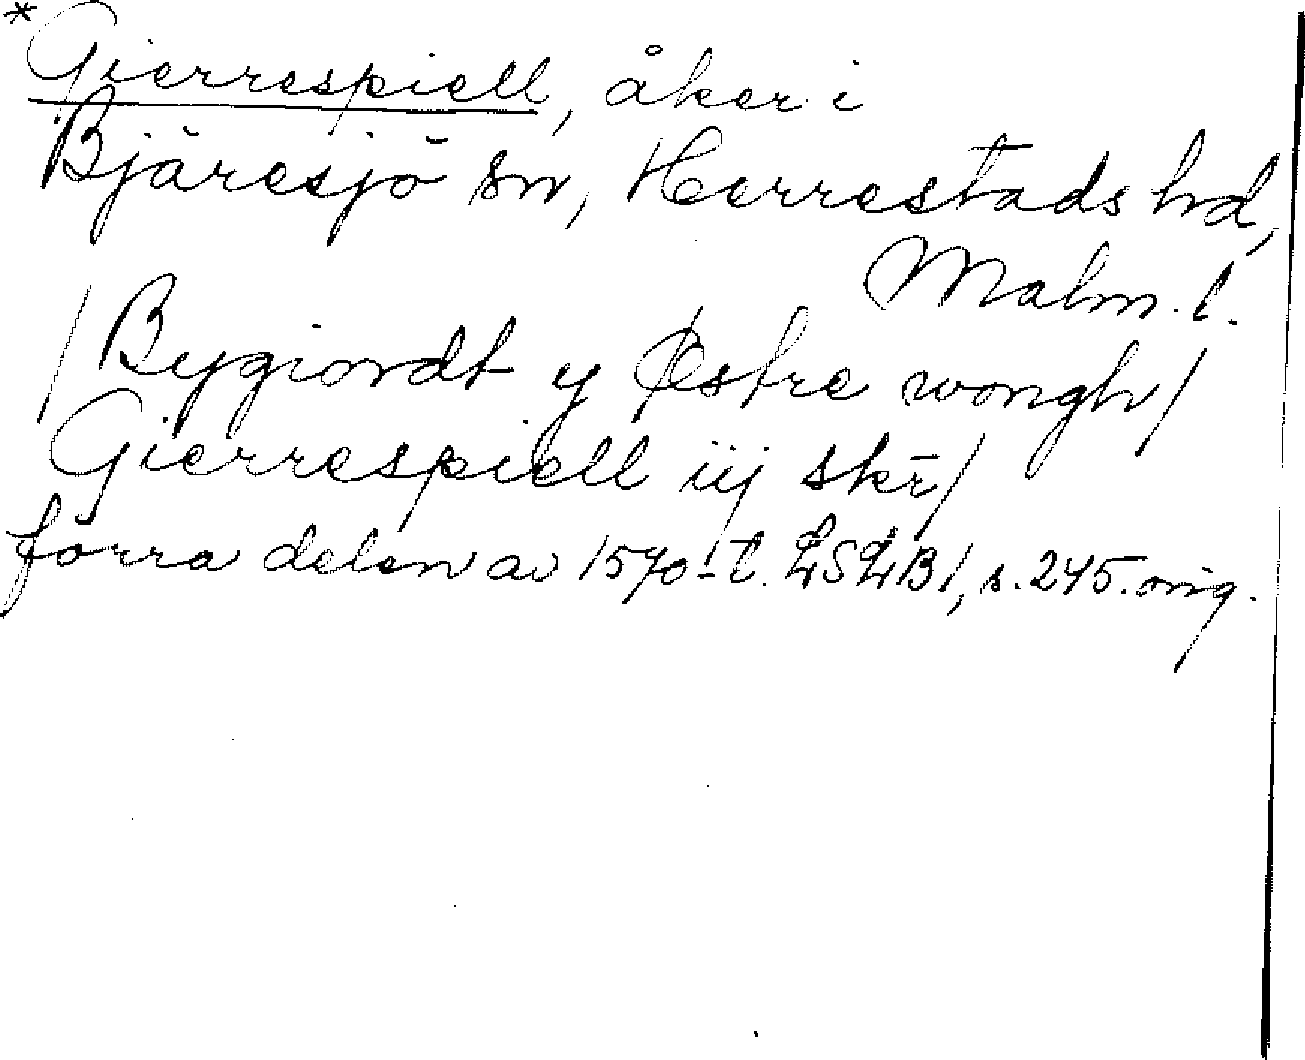 *Gierrespiell, åker i
Bjäresjö sn, Herrestads hd,
Malm. l.
/Bygiordt y Østre wongh/
Gierrespiell iij skr̄/
förra delen av 1570-t. LSLB1, s. 245. orig.